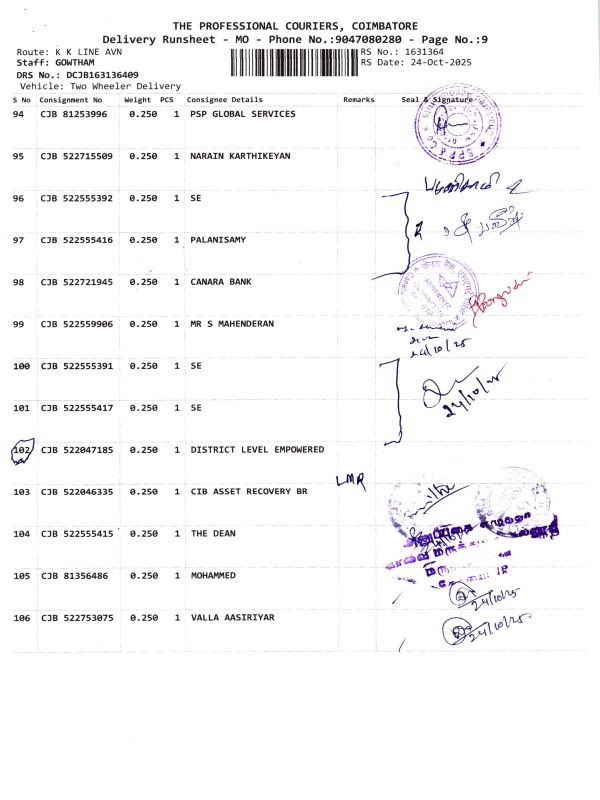 THE PROFESSIONAL COURIERS, COIMBATORE
Delivery Runsheet - MO - Phone No.:9047080280 - Page No.:9
Route: K K LINE AVN
RS No.: 1631364
Staff: GOWTHAM
RS Date: 24-Oct-2025
DRS No.: DCJB163136409
Vehicle: Two Wheeler Delivery
S No Consignment No Weight PCS Consignee Details Remarks Seal & Signature
94 CJB 81253996 0.250 1 PSP GLOBAL SERVICES
95 CJB 522715509 0.250 1 NARAIN KARTHIKEYAN
96 CJB 522555392 0.250 1 SE
97 CJB 522555416 0.250 1 PALANISAMY
98 CJB 522721945 0.250 1 CANARA BANK
99 CJB 522559906 0.250 1 MR S MAHENDERAN
24/10/25
100 CJB 522555391 0.250 1 SE
24/10/25
101 CJB 522555417 0.250 1 SE
102 CJB 522047185 0.250 1 DISTRICT LEVEL EMPOWERED
LMR
103 CJB 522046335 0.250 1 CIB ASSET RECOVERY BR
104 CJB 522555415 0.250 1 THE DEAN
105 CJB 81356486 0.250 1 MOHAMMED
24/10/25
106 CJB 522753075 0.250 1 VALLA AASIRIYAR
24/10/25